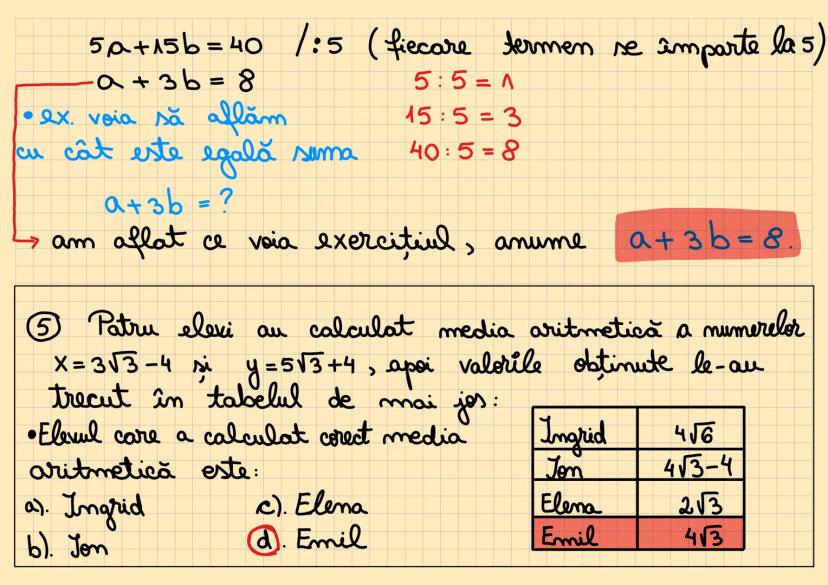 5a+15b=40 /:5 (fiecare termen se împarte la 5)
a + 3b = 8 5:5=1
• ex. voia să aflăm 15:5=3
cu cât este egală suma 40:5=8
a+3b = ?
am aflat ce voia exercițiul, anume a+3b=8.
⑤ Patru elevi au calculat media aritmetică a numerelor
x=3√3-4 și y=5√3+4, apoi valorile obținute le-au
trecut în tabelul de mai jos:
• Elevul care a calculat corect media
aritmetică este:
a). Ingrid c). Elena
b). Ion d). Emil
Ingrid 4√6
Ion 4√3-4
Elena 2√3
Emil 4√3